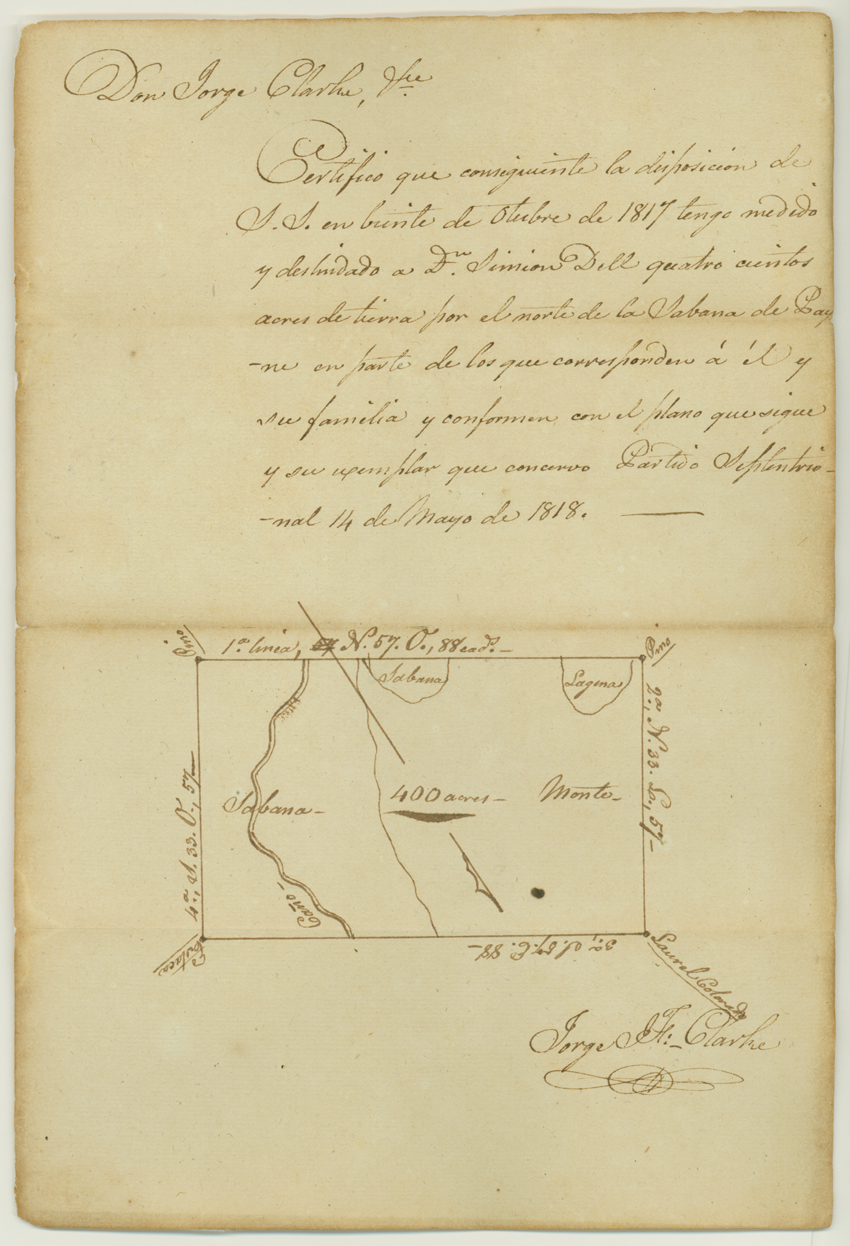 Don Jorge Clarke, &ce
Certifico que consiguiente la disposicion de
S. S. en beinte de Otubre de 1817 tengo medido
y deslindado a Dn. Simion Dell quatro cientos
acres de tierra por el norte de la Sabana de Pay
-ne en parte de los que corresponden á él y
su familia y conformen con el plano que sigue
y su exemplar que concervo Partido Septentrio-
-nal 14 de Mayo de 1818.
Pino
1a. linea, N. 57. O., 88 cads.
Pino
Sabana
Laguna
2a., N. 33. E., 57
400 acres
Monte
Sabana
Caño
4a., S. 33. O., 57
3a., S. 57. E. 88
Estaca
Laurel Colorado
Jorge J. F. Clarke